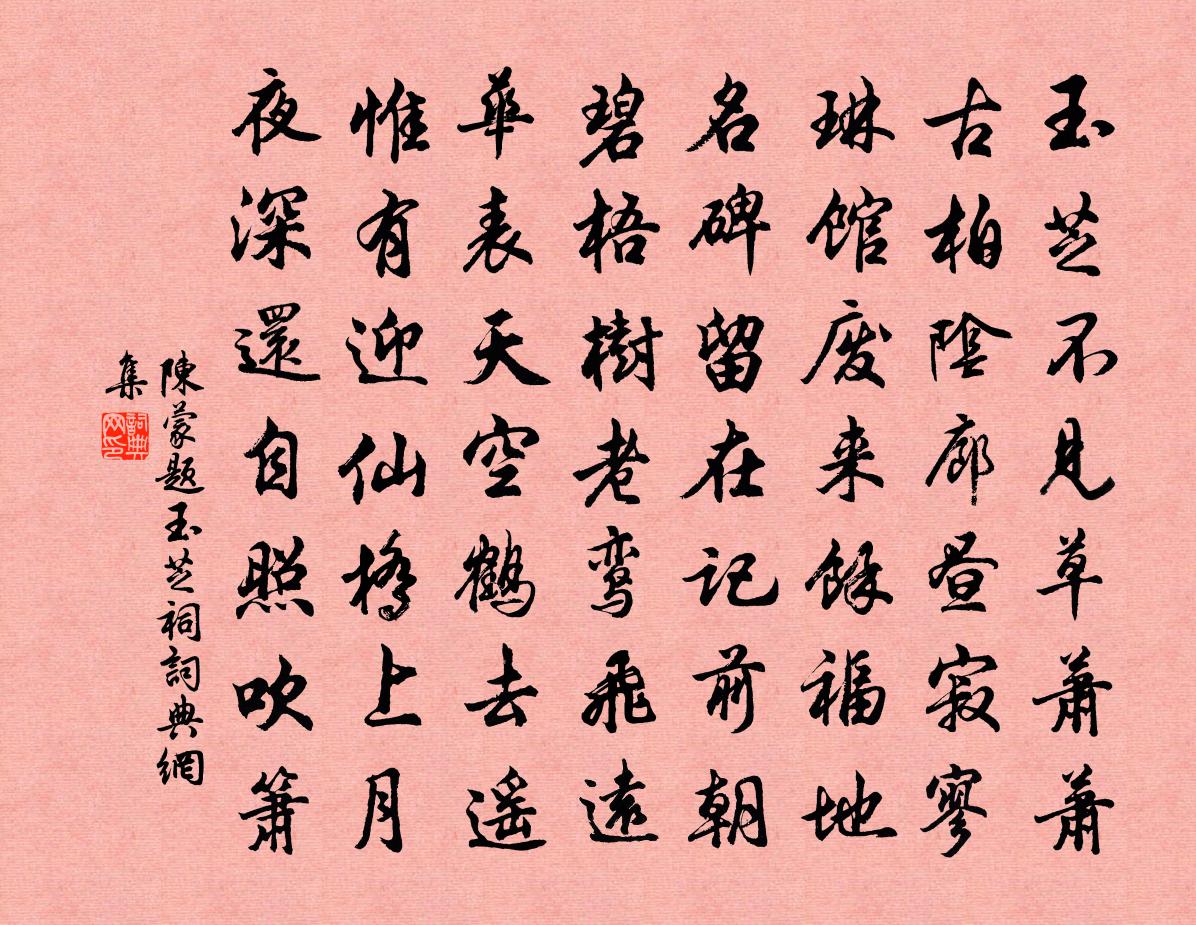 玉芝不見草蕭蕭
古柏陰廊晝寂寥
琳館废来餘福地
名碑留在記前朝
碧梧樹老鸾飛遠
華表天空鶴去遥
惟有迎仙橋上月
夜深還自照吹簫
陳蒙題玉芝祠詞典網
集
詞典
网印